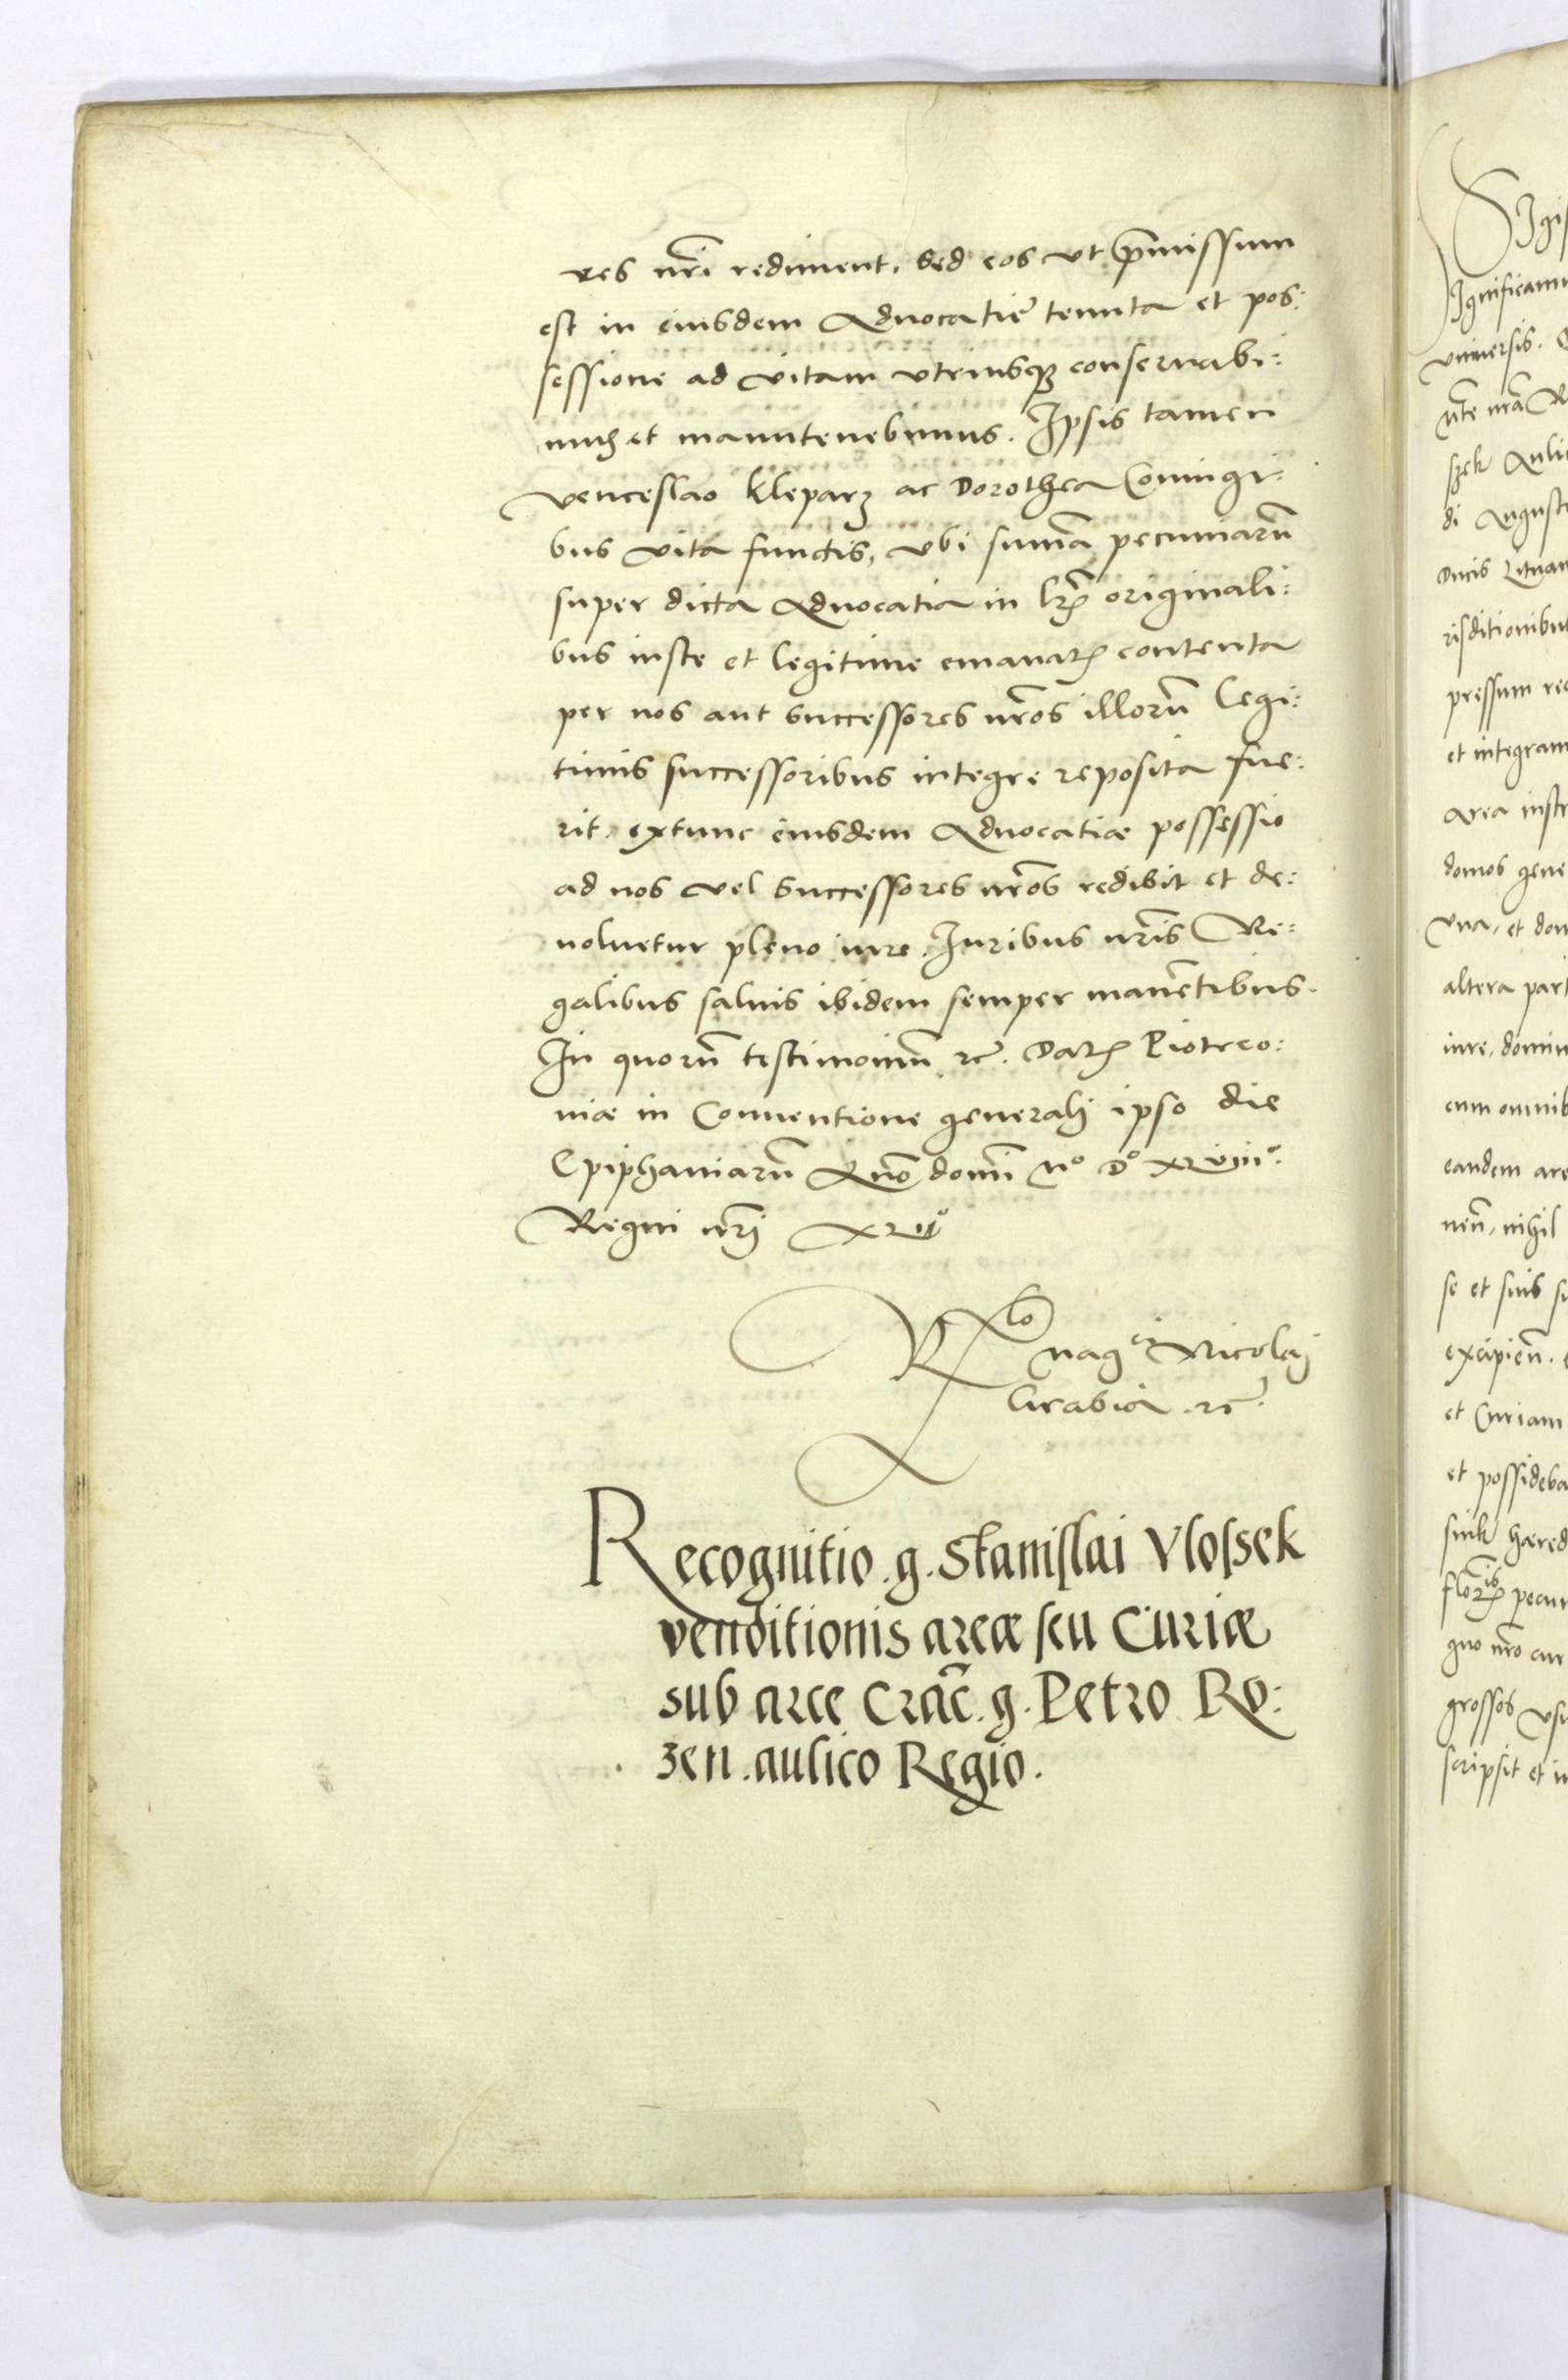 res nr̃i rediment. Sed eos vt p̃missum
est in eiusdem Aduocatie tenuta et pos:
sessione ad vitam vtriusqȝ conseruabi:
muꝫ et manutenebimus. Ipsis tamen
venceslao kleparz ac Dorothea Coniugi:
bus vita functis, vbi sum̃a pecuniarũ
super dicta Aduocatia in lr̃ꝭ originali:
bus iuste et legitime emanatꝭ contenta
per nos aut successores nr̃os illorũ legi:
timis successoribus integre reposita fue:
rit. extunc eiusdem Aduocatiæ possessio
ad nos vel successores nr̃os redibit et de:
uoluetur pleno iure. Iuribus nr̃is Re:
galibus saluis ibidem semper manẽtibus.
In quorũ testimoniũ ꝛc̃. Datꝭ Piotrco:
uiæ in Conuentione generalj ipso die
Epiphaniarũ Año domĩ Mº Dº xlviiiº.
Regni nr̃j xliiº
Rlo
Magci Nicolaj
Grabia ꝛc̃.
Recognitio .g. Stanislai Vlossek
venditionis areæ seu Curiæ
sub arce Crac̃. g. Petro Ro:
zen. aulico Regio.
Sigis
Ignificamu
vniuersis. Q
nr̃am
szek Auli
di August
Ducis Lituan
risditionibu
pressum rec
et integram
area instr
domos gene
vna, et dom
altera part
iure, domin
cum omnib
eandem are
neñ, nihil
se et suis su
excipień.
et Curiam
et posside­ba
siuk hæred
florꝭ pecun
quo nr̃o cur
grossos vsu
scripsit et in